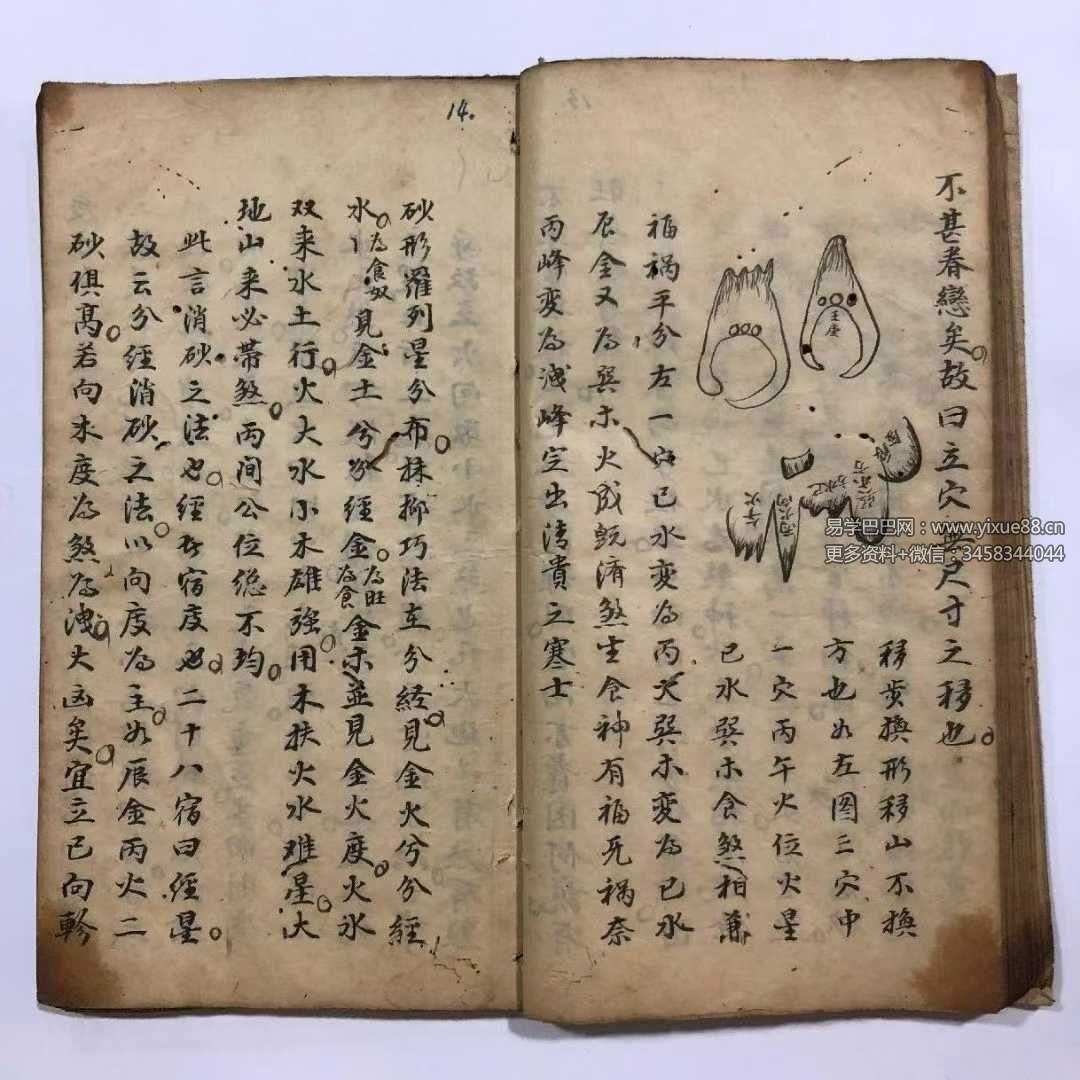 不甚眷戀矣故曰立穴無尺寸之移也
移步換形移山不換
方也如左图三穴中
一穴丙午火位火星
巳水巽木食煞相蕭
福祸平分左一穴巳水变為丙火巽木变為巳水
辰金又為巽木火成既濟煞生食神有福无祸奈
丙峰变為洩峰定出清貴之寒士
14.
砂形羅列星分布抹抑巧法在分経見金火兮分経
水為食奴見金土兮分経金為旺為食金木並見金火度火水
双来水土行火大水小木雄強用木扶火水难星大
地山来必帶煞丙間公位緫不均
此言消砂之法也経者宿度也二十八宿曰経星
故云分経消砂之法以向度為主如辰金丙火二
砂俱髙若向水度為煞為洩大凶矣宜立巳向軫
王庚
丙火向
午火
易学巴巴网：www.yixue88.cn
更多资料+微信：3458344044